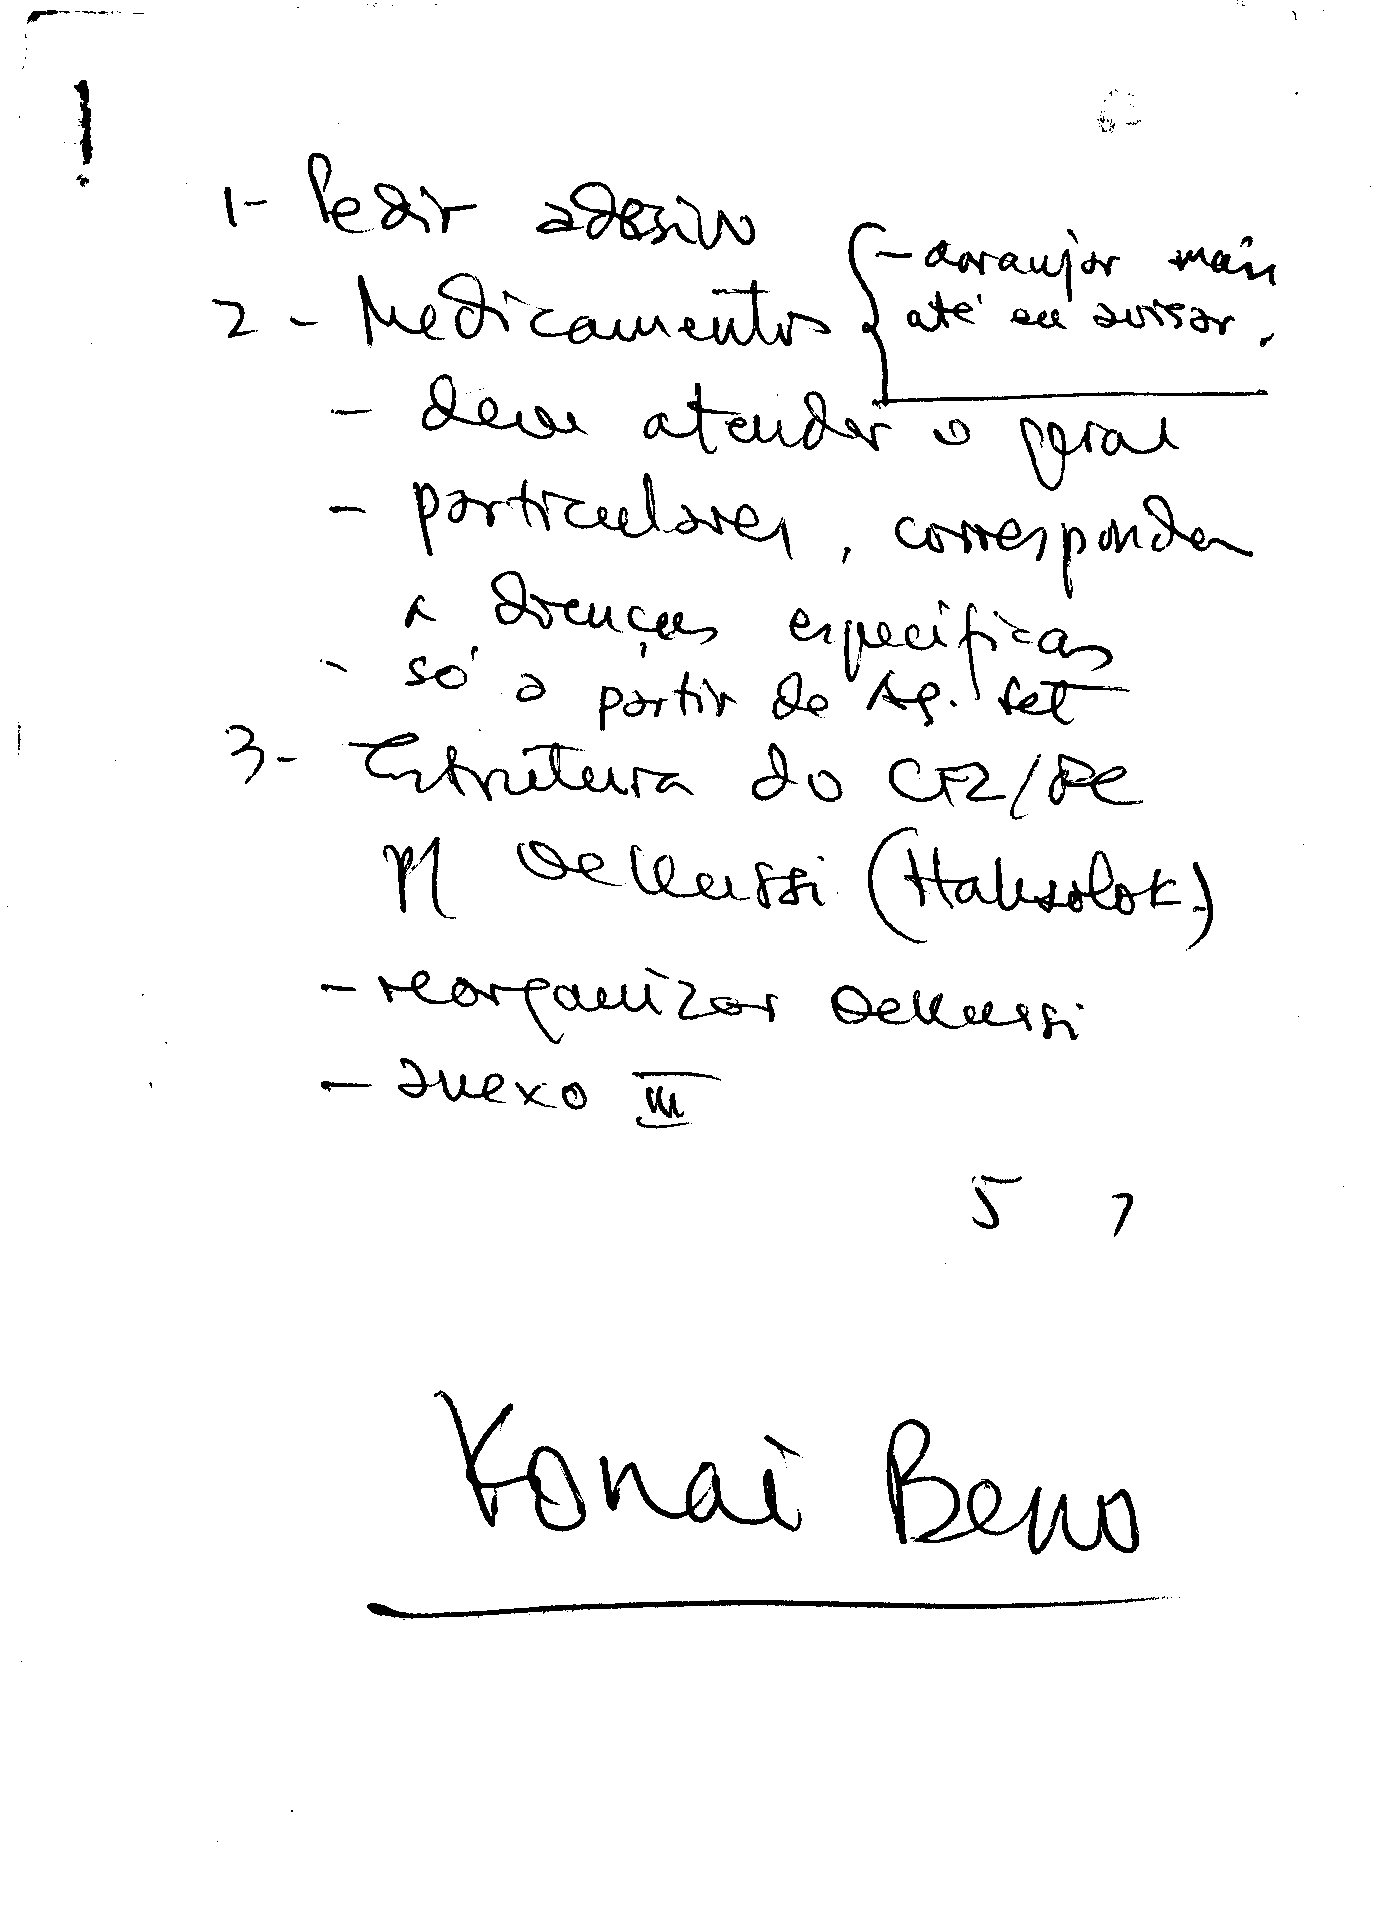 !
1- Pedir adesivo
2 - Medicamentos { - arranjar mais
até eu avisar.
- deve atender o geral
- particulares, correspondem
a doenças específicas
- só a partir de Ag. Set
3- Estrutura do
p/ Oekussi (Haksolok)
- reorganizar Oekussi
- anexo III
5 7
Konai Beno